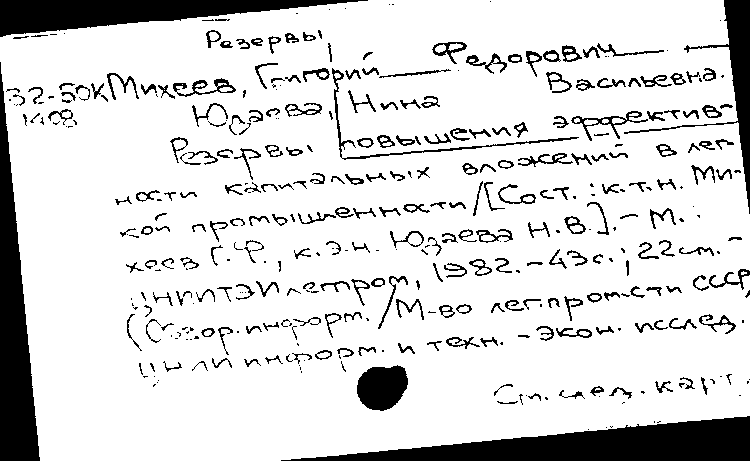 Резервы
82-50к Михеев, Григорий Федорович
1408 Юдаева, Нина Васильевна.
Резервы повышения эффектив-
ности капитальных вложений в лег-
кой промышленности / [Сост.: к.т.н. Ми-
хеев Г.Ф., к.э.н. Юдаева Н.В.]. - М.:
ЦНИИТЭИлегпром, 1982. - 43 с.; 22 см. -
(Обзор. информ. / М-во лег. пром-сти СССР,
ЦНИИ информ. и техн. - экон. исслед.
См. след. карт.